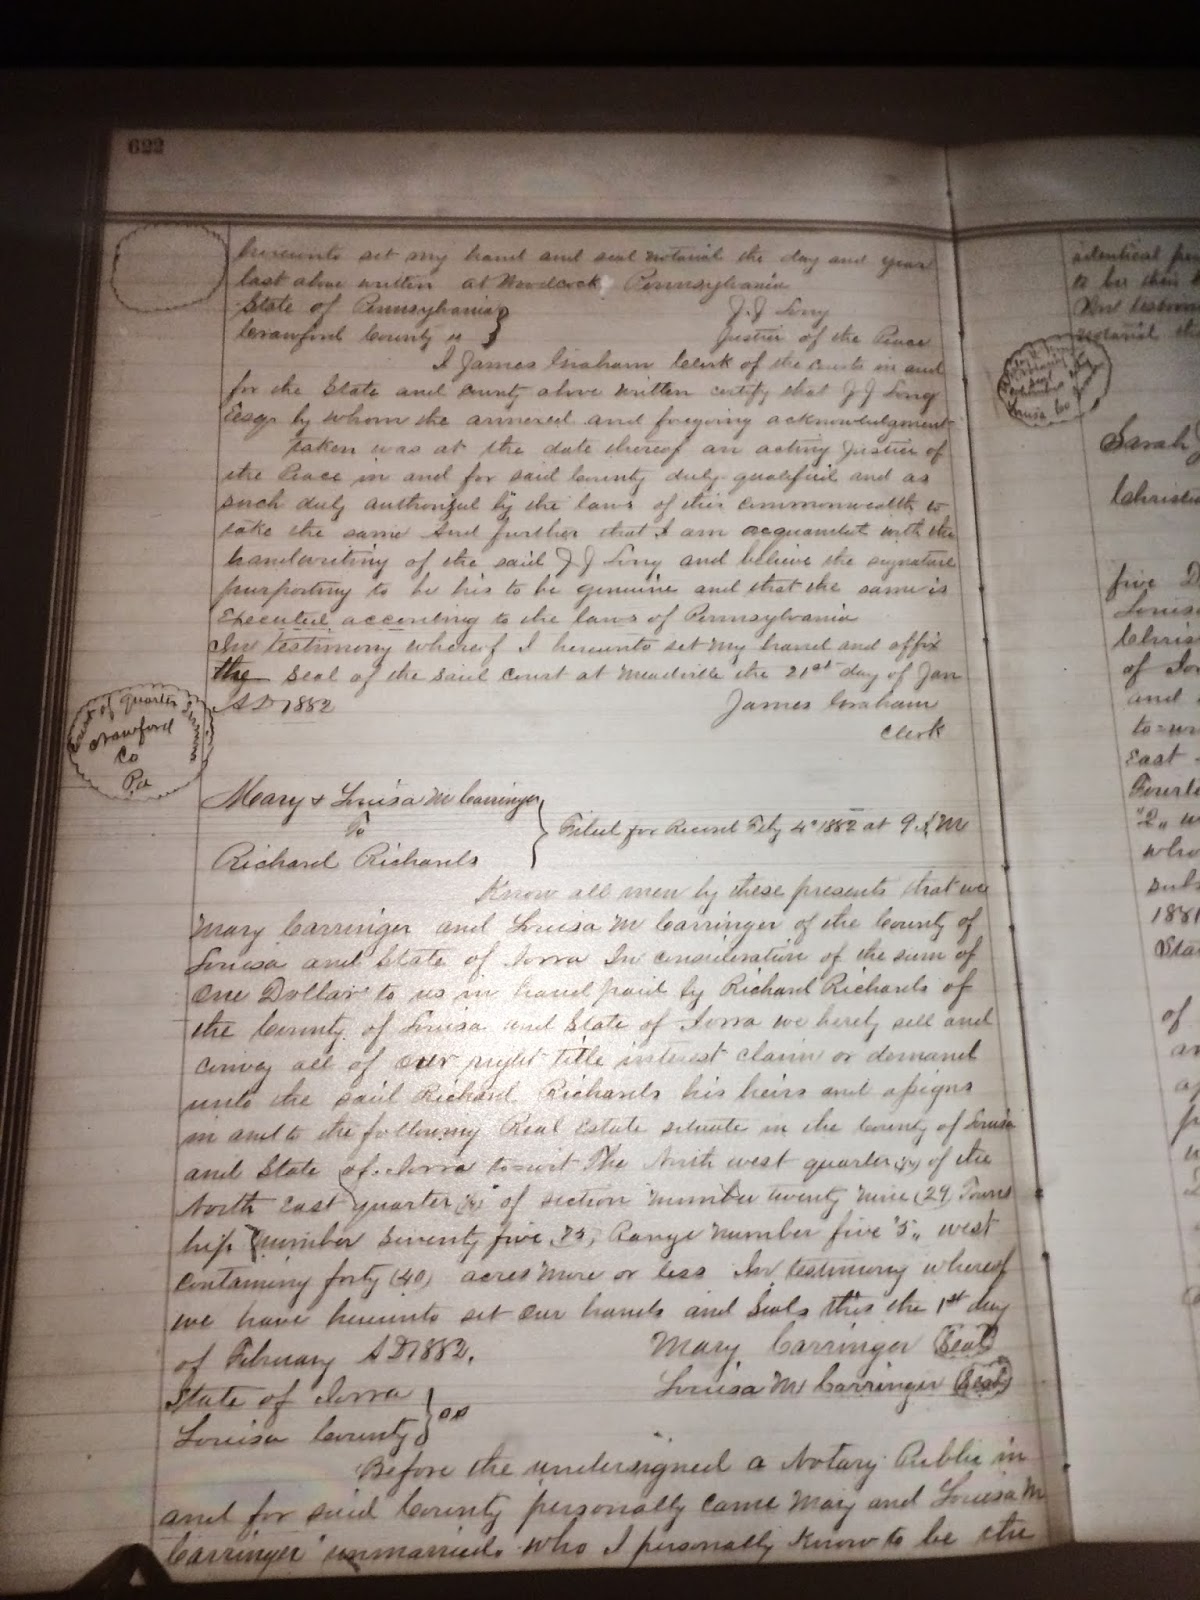 622
hereunto set my hand and seal notarial the day and year
last above written at Woodcock Pennsylvania
State of Pennsylvania
J. J Long
Crawford County ss
Justice of the Peace
I James Graham Clerk of the courts in and
for the State and county above written certify that J J Long
Esqr by whom the annexed and foregoing acknowledgment
taken was at the date thereof an acting Justice of
the Peace in and for said County duly qualified and as
such duly authorized by the laws of this commonwealth to
take the same And further that I am acquaintet with the
handwriting of the said J J Long and believe the signature
purporting to be his to be genuine and that the same is
Executed according to the laws of Pennsylvania
In testimony whereof I hereunto set my hand and affix
the Seal of the said court at Meadville the 21st day of Jan
AD 1882
James Graham
Clerk
of quarter
Crawford
Co
Pa
Mary & Louisa M Carringer
To
Richard Richards
Filed for Record Feby 4th 1882 at 9 A M
Know all men by these presents that we
Mary Carringer and Louisa M Carringer of the County of
Louisa and State of Iowa In consideration of the sum of
One Dollar to us in hand paid by Richard Richards of
the County of Louisa and State of Iowa we hereby sell and
convey all of our right title interest claim or demand
unto the said Richard Richards his heirs and assigns
in and to the following Real Estate situate in the County of Louisa
and State of Iowa to=wit The North west quarter (¼) of the
North East quarter (¼) of section number twenty nine (29) Towns
hip number Seventy five 75, Range number five "5" west
containing forty (40) acres more or less In testimony whereof
we have hereunto set our hands and Seals this the 1st day
of February AD 1882.
Mary Carringer (Seal)
Louisa M Carringer (Seal)
State of Iowa
Louisa County ss
Before the undersigned a Notary Public in
and for said County personally came Mary and Louisa M
Carringer unmarried who I personally know to be the
identical
to be their
notarial the
Louisa Co
Sarah
five D
Louisa
Chris
of Io
and
to=w
East
"2"
who
subs
1881
Sta
of